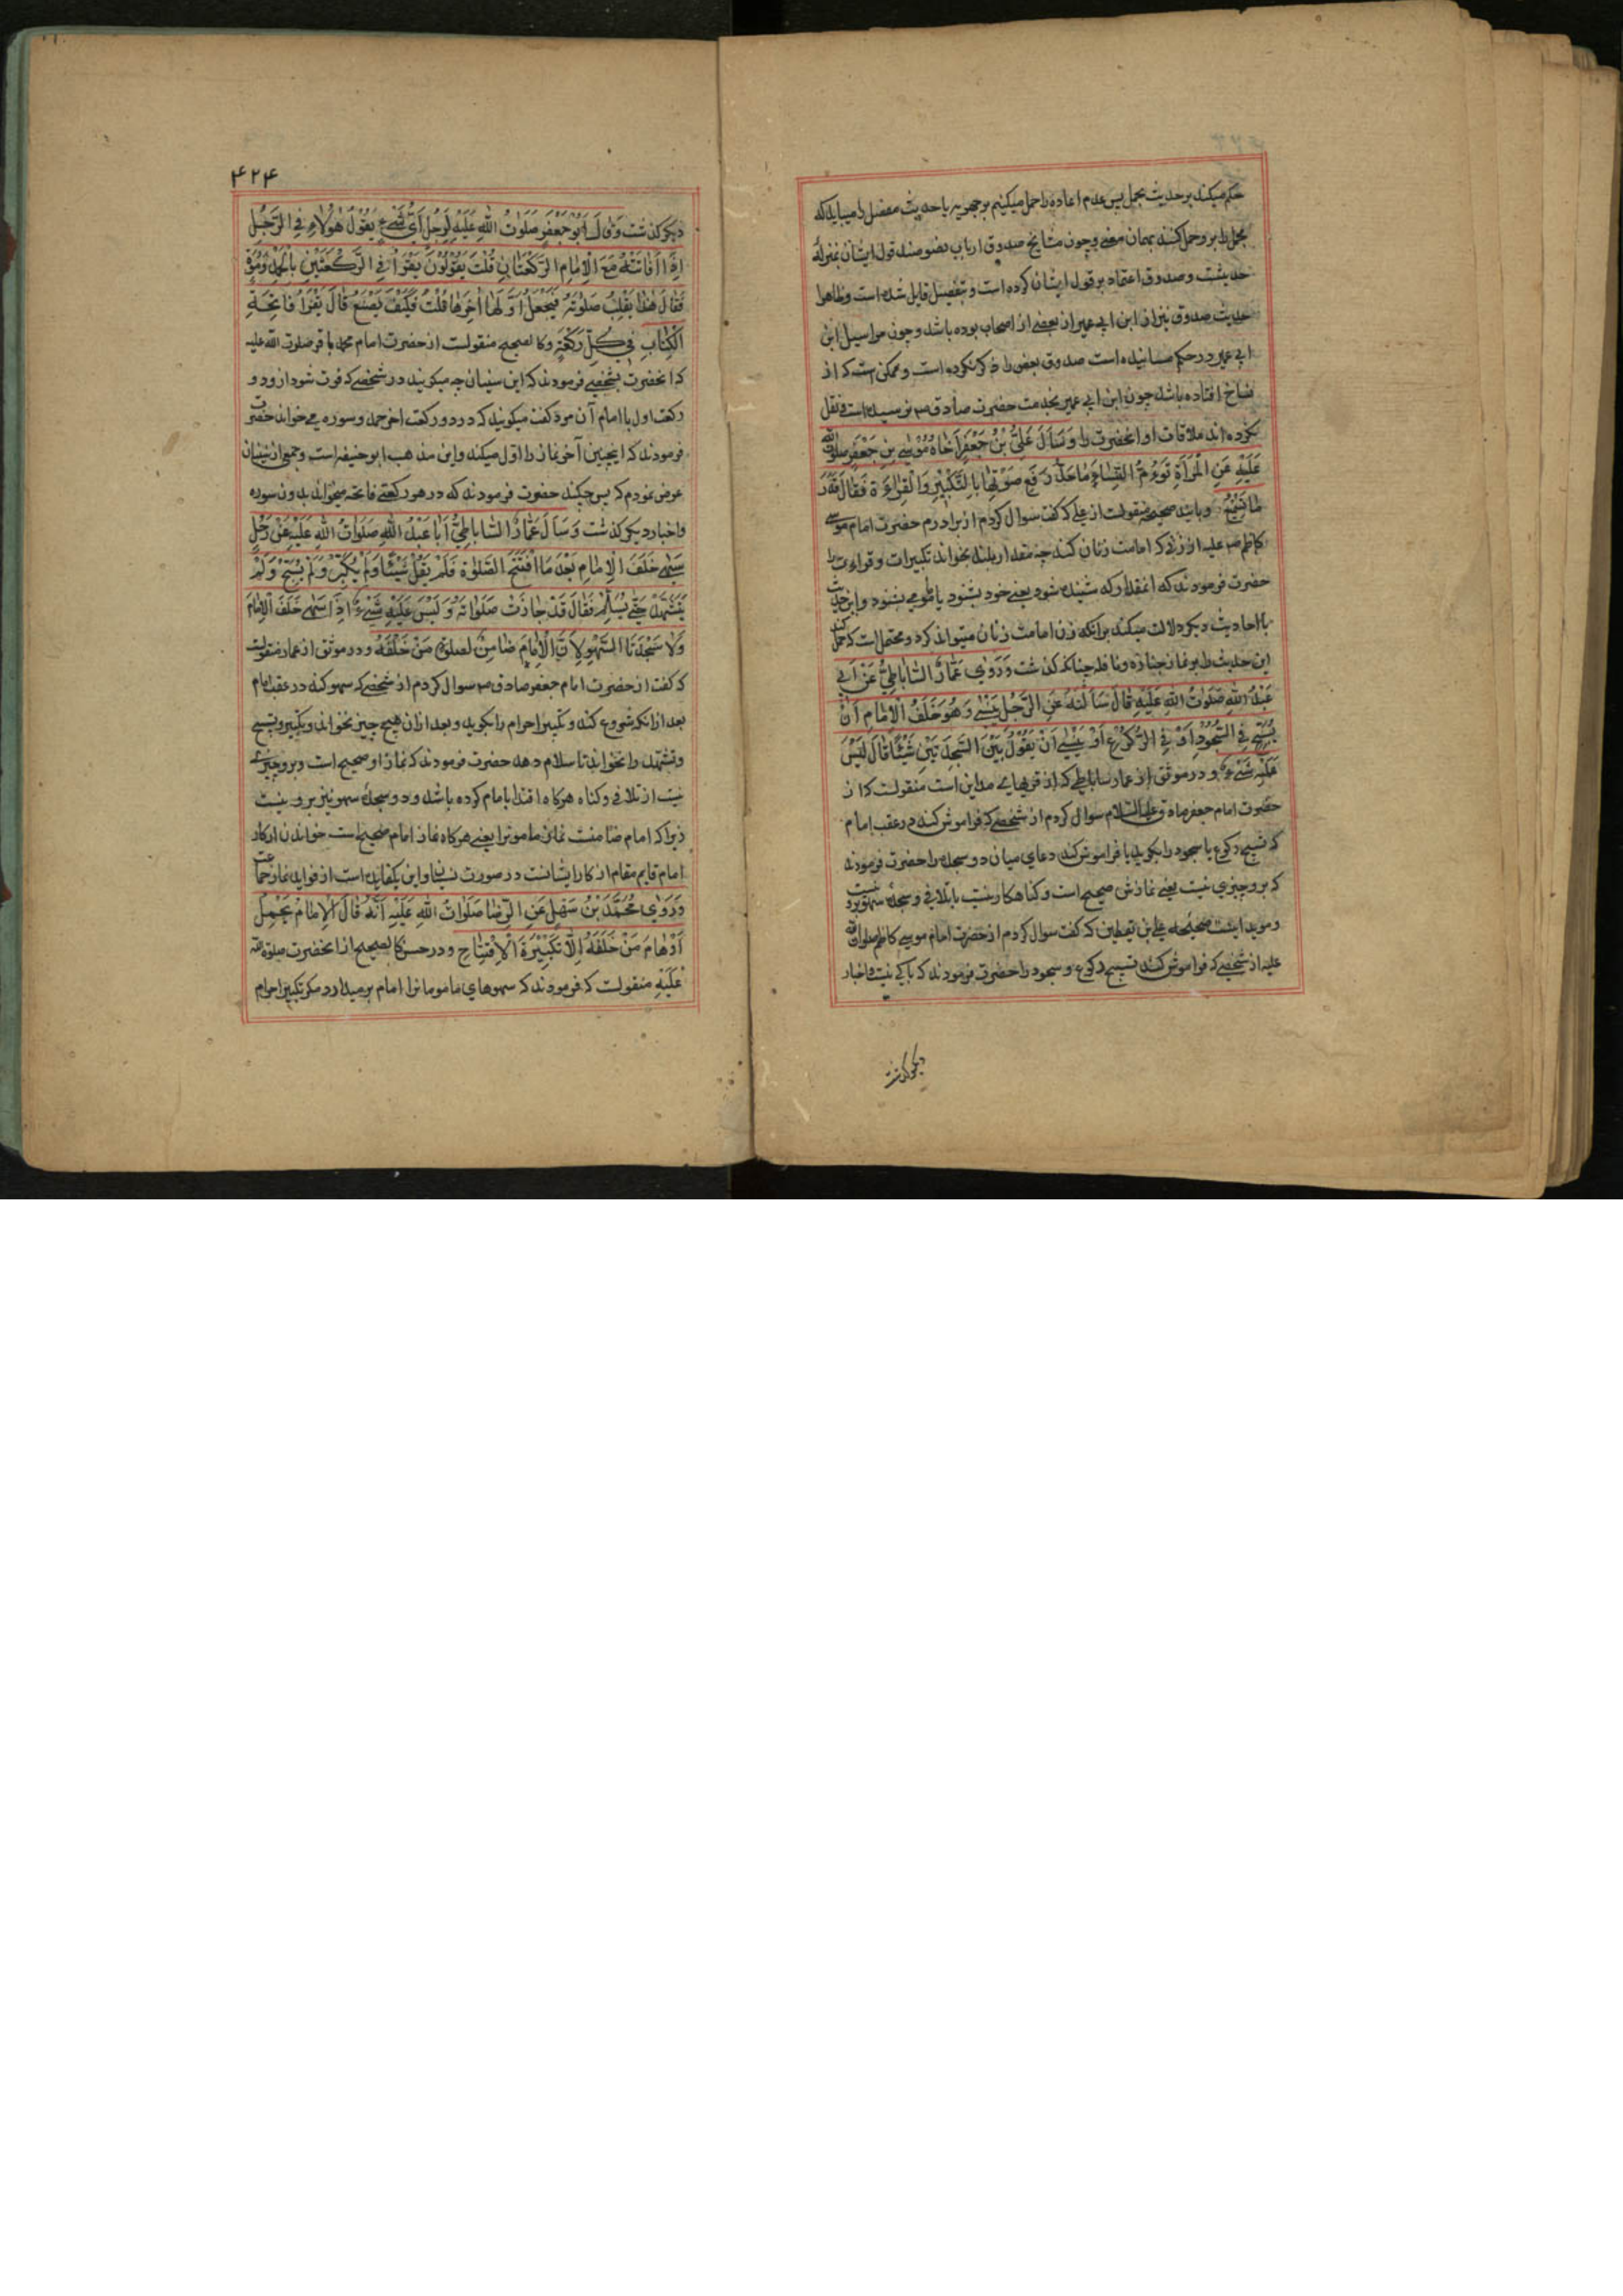 حکم میکند بر حدیث مجمل پس عدم اعاده را حمل میکنیم بر جهریه یا حدیث مفصل را میباید که
مجمل را بر و حمل کنند بهمان معنی و چون مشایخ صدوق ارباب نصوصند قول ایشان بمنزلهٔ
حدیثست و صدوق اعتماد بر قول ایشان کرده است و بتفصیل قایل شده است و ظاهرا
حدیث صدوق نیز از ابن ابی عمیر از بعضی از اصحاب بوده باشد و چون مراسیل ابن
ابی عمیر در حکم مسانیده است صدوق بعض را ذکر نکرده است و ممکن است که از
نساخ افتاده باشد چون ابن ابی عمیر بخدمت حضرت صادق ص نرسیده است و نقل
نکرده اند ملاقات او آنحضرت را وَسَأَلَ عَلِیُّ بْنُ جَعْفَرٍ اَخَاهُ مُوْسَی بْنِ جَعْفَرٍ صلوات الله
عَلَیْهِ عَنِ الْمَرْأَةِ تَؤُمُّ النِّسَاءَ مَا حَدُّ رَفْعِ صَوْتِهَا بِالتَّکْبِیْرِ وَالْقِرَاءَةِ فَقَالَ قَدْرَ
مَا تَسْمَعُ و باسانید صحیحه منقولست از علی که گفت سوال کردم از برادرم حضرت امام موسی
کاظم ص علیه از زنی که امامت زنان کند چه مقدار بلند بخواند تکبیرات و قراءت را
حضرت فرمودند که آنمقدار که شنیده شود یعنی خود بشنود یا ماموم بشنود و این حدیث
با احادیث دیگر دلالت میکند بر آنکه زن امامت زنان میتواند کرد و محتمل است که حمل کنند
این حدیث را بر نماز جنازه و نافله چنانکه گذشت وَرَوٰی عَمَّارٌ السَّابَاطِیُّ عَنْ اَبِی
عَبْدِ اللهِ صَلَوٰتُ اللهِ عَلَیْهِ قَالَ سَأَلْتُهُ عَنِ الرَّجُلِ یَنْسٰی وَهُوَ خَلْفَ الْاِمَامِ اَنْ
یُسَبِّحَ فِی السُّجُوْدِ اَوْ فِی الرُّکُوْعِ اَوْ یَنْسٰی اَنْ یَقُوْلَ بَیْنَ السَّجْدَتَیْنِ شَیْئًا قَالَ لَیْسَ
عَلَیْهِ شَیْءٌ و در موثق از عمار ساباطی که از قریهای مداین است منقولست که از
حضرت امام جعفر صادق علیه السلام سوال کردم از شخصی که فراموش کند در عقب امام
که تسبیح رکوع یا سجود را بگوید یا فراموش کند دعای میان دو سجده را حضرت فرمودند
که برو چیزی نیست یعنی نمازش صحیح است و گناهکار نیست یا تلافی و سجده سهو برو نیست
و موید اینست صحیحه علی بن یقطین که گفت سوال کردم از حضرت امام موسی کاظم صلوات الله
علیه از شخصی که فراموش کند تسبیح رکوع و سجود را حضرت فرمودند که باکی نیست و اخبار
دیگر گذشت
۴۲۴
دیگر گذشت وَقَالَ اَبُوْ جَعْفَرٍ صَلَوَاتُ اللهِ عَلَیْهِ لِرَجُلٍ اَیُّ شَیْءٍ یَقُوْلُ هٰؤُلَاءِ فِی الرَّجُلِ
اِذَا فَاتَتْهُ مَعَ الْاِمَامِ الرَّکْعَتَانِ قُلْتُ یَقُوْلُوْنَ یَقْرَأُ فِی الرَّکْعَتَیْنِ بِالْحَمْدِ وَسُوْرَةٍ
فَقَالَ هٰذَا یَقْلِبُ صَلٰوتَهُ فَیَجْعَلُ اَوَّلَهَا اٰخِرَهَا قُلْتُ فَکَیْفَ یَصْنَعُ قَالَ یَقْرَأُ فَاتِحَةَ
الْکِتَابِ فِی کُلِّ رَکْعَةٍ و کالصحیح منقولست از حضرت امام محمد باقر صلوات الله علیه
که آنحضرت بشخصی فرمودند که این سنیان چه میگویند در شخصی که فوت شود ازو دو
رکعت اول با امام آن مرد گفت میگویند که در دو رکعت اخر حمد و سوره می خواند حضرت
فرمودند که اینچنین آخر نماز را اول میکند و این مذهب ابو حنیفه است و جمعی از سنیان
عرض نمودم که پس چکند حضرت فرمودند که در هر رکعتی فاتحه میخواند بدون سوره
و اخبار دیگر گذشت وَسَأَلَ عَمَّارٌ السَّابَاطِیُّ اَبَا عَبْدِ اللهِ صَلَوَاتُ اللهِ عَلَیْهِ عَنْ رَجُلٍ
سَهٰی خَلْفَ الْاِمَامِ بَعْدَ مَا افْتَتَحَ الصَّلٰوةَ فَلَمْ یَقُلْ شَیْئًا وَلَمْ یُکَبِّرْ وَلَمْ یُسَبِّحْ وَلَمْ
یَتَشَهَّدْ حَتّٰی یُسَلِّمَ فَقَالَ قَدْ جَازَتْ صَلَوَاتُهُ وَلَیْسَ عَلَیْهِ شَیْءٌ اِذَا سَهٰی خَلْفَ الْاِمَامِ
وَلَا سَجْدَتَا السَّهْوِ لِاَنَّ الْاِمَامَ ضَامِنٌ لِصَلٰوةِ مَنْ خَلْفَهُ و در موثق از عمار منقولست
که گفت از حضرت امام جعفر صادق ص سوال کردم از شخصی که سهو کند در عقب امام
بعد از انکه شروع کند و تکبیر احرام را بگوید و بعد ازان هیچ چیز نخواند و تکبیر و تسبیح
و تشهد را نخواند تا سلام دهد حضرت فرمودند که نماز او صحیح است و برو چیزی
نیست از تلافی و گناه هرگاه اقتدا بامام کرده باشد و دو سجدهٔ سهو نیز برو نیست
زیرا که امام ضامنست نماز ماموم را یعنی هرگاه نماز امام صحیح است خواندن اذکار
امام قایم مقام اذکار ایشانست در صورت نسیان و این یکفایده است از فواید نماز جماعت
وَرَوٰی مُحَمَّدُ بْنُ سَهْلٍ عَنِ الرِّضَا صَلَوَاتُ اللهِ عَلَیْهِ اَنَّهُ قَالَ الْاِمَامُ یَحْمِلُ
اَوْهَامَ مَنْ خَلْفَهُ اِلَّا تَکْبِیْرَةَ الْاِفْتِتَاحِ و در حسن کالصحیح از آنحضرت صلوة الله
عَلَیْهِ منقولست که فرمودند که سهوهای مامومانرا امام برمیدارد مگر تکبیر احرام